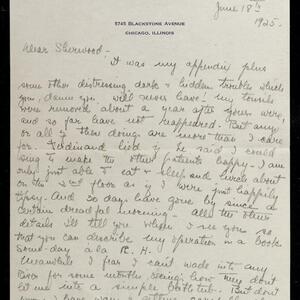 June 18th
1925.
5745 BLACKSTONE AVENUE
CHICAGO, ILLINOIS
Dear Sherwood -
It was my appendix plus
some other distressing, dark & hidden trouble which
you, damn you, will never have! My tonsils
were removed about a year after yours were,
and so far have not reappeared. But any
or all of their doings are more than I care
for. Ferdinand lied if he said I could
sing & make the other patients happy - I am
only just able to eat & sleep and lurch about
on the 2nd floor as if I were just happily
tipsy. And so days have gone by since
certain dreadful morning - all the other
details I'll tell you when I see you so
that you can describe my operation in a book
some-day à la R. H.
Meanwhile I fear I can't wade into any
river for some months seeing how they don't
let me into a simple bathtub. But don't